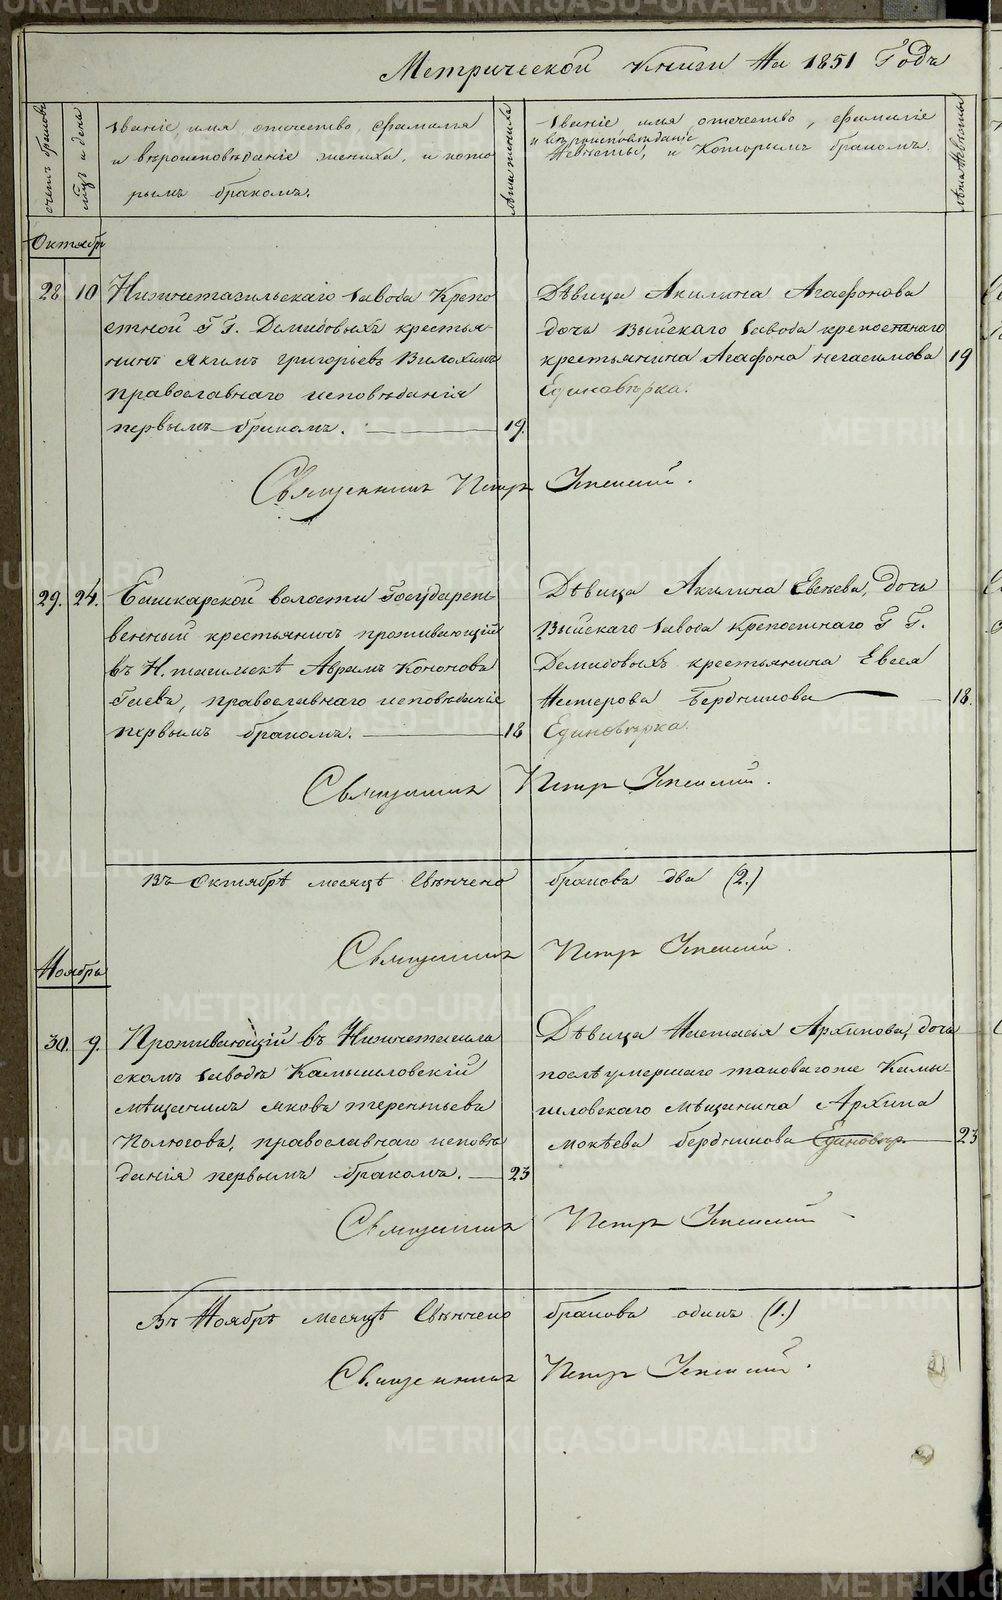 Метрической книги На 1851 Годъ
счетъ браковъ
мцъ и день
Званіе, имя, отечество, фамилія
и вѣроисповѣданіе жениха, и кото
рымъ бракомъ.
лѣта жениха
Званіе, имя отечество, фамиліе
и вѣроисповѣданіе
Невѣсты, и Которымъ бракомъ.
лѣта Невѣсты
Октябрь
28 10 Нижнетагильскаго Завода Крепо
стной Г Г. Демидовыхъ крестья-
нинъ Якимъ Григорьевъ Вилохинъ
православнаго исповѣданія
первымъ бракомъ. 19.
Дѣвица Акилина Агафонова
дочь Выйскаго Завода крепостнаго
крестьянина Агафона Негасимова 19
Единовѣрка.
Священникъ Петръ Успенскій.
29. 24. Башкарской волости Государст-
венный крестьянинъ проживающій
въ Н. тагильскѣ Аврамъ Кононовъ
Гаевъ, православнаго исповѣданія
первымъ бракомъ. 18
Дѣвица Акилина Евсѣева, дочь
Выйскаго Завода Крепостнаго Г Г.
Демидовыхъ крестьянина Евсея
Нестерова Бердникова 18.
Единовѣрка.
Священникъ Петръ Успенскій.
Въ Октябрѣ месяцѣ Свѣнчено браковъ два (2.)
Священникъ Петръ Успенскій.
Ноябрь
30. 9. Проживающій въ Нижнетагиль
скомъ Заводѣ Камышловскій
мѣщанинъ Яковъ терентьевъ
Полюговъ, православнаго исповѣ
данія первымъ бракомъ. 23
Дѣвица Настасья Архипова, дочь
послѣ умершаго таковагоже Камы-
шловскаго мѣщанина Архипа
Мокѣева бердникова Единовѣр. 23
Священникъ Петръ Успенскій
Въ Ноябрѣ месяцѣ Свѣнчено браковъ одинъ (1.)
Священникъ Петръ Успенскій.
METRIKI.GASO-URAL.RU